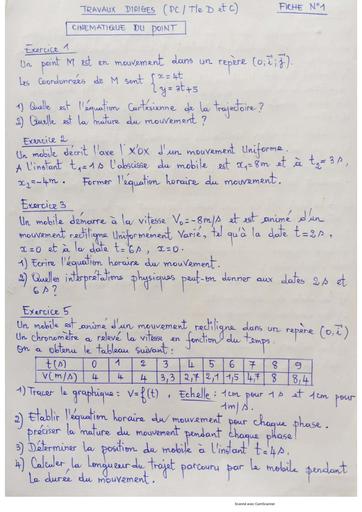 TRAVAUX DIRIGES (PC / Tle D et C)
FICHE N°1
CINEMATIQUE DU POINT
Exercice 1
Un point M est en mouvement dans un repère (o; i⃗; j⃗).
Les coordonnées de M sont { x = 4t
y = 3t + 5
1) Quelle est l'équation Cartésienne de la trajectoire ?
2) Quelle est la nature du mouvement ?
Exercice 2
Un mobile décrit l'axe X'OX d'un mouvement Uniforme.
A l'instant t₁ = 1s l'abscisse du mobile est x₁ = 8m et à t₂ = 3s,
x₂ = -4m. Former l'équation horaire du mouvement.
Exercice 3
Un mobile démarre à la vitesse V₀ = -8m/s et est animé d'un
mouvement rectiligne Uniformément Varié, tel qu'à la date t = 2s,
x = 0 et à la date t = 6s, x = 0.
1) Ecrire l'équation horaire du mouvement.
2) Quelles interprétations physiques peut-on donner aux dates 2s et
6s ?
Exercice 5
Un mobile est animé d'un mouvement rectiligne dans un repère (o, i⃗)
Un chronomètre a relevé la vitesse en fonction du temps.
On a obtenu le tableau suivant :
t(s) 0 1 2 3 4 5 6 7 8 9
V(m/s) 4 4 4 3,3 2,7 2,1 1,5 4,7 8 8,4
1) Tracer le graphique : V = f(t). Echelle : 1cm pour 1s et 1cm pour
1m/s.
2) Etablir l'équation horaire du mouvement pour chaque phase.
préciser la nature du mouvement pendant chaque phase !
3) Déterminer la position du mobile à l'instant t = 4s.
4) Calculer la longueur du trajet parcouru par le mobile pendant
la durée du mouvement.
Scanné avec CamScanner